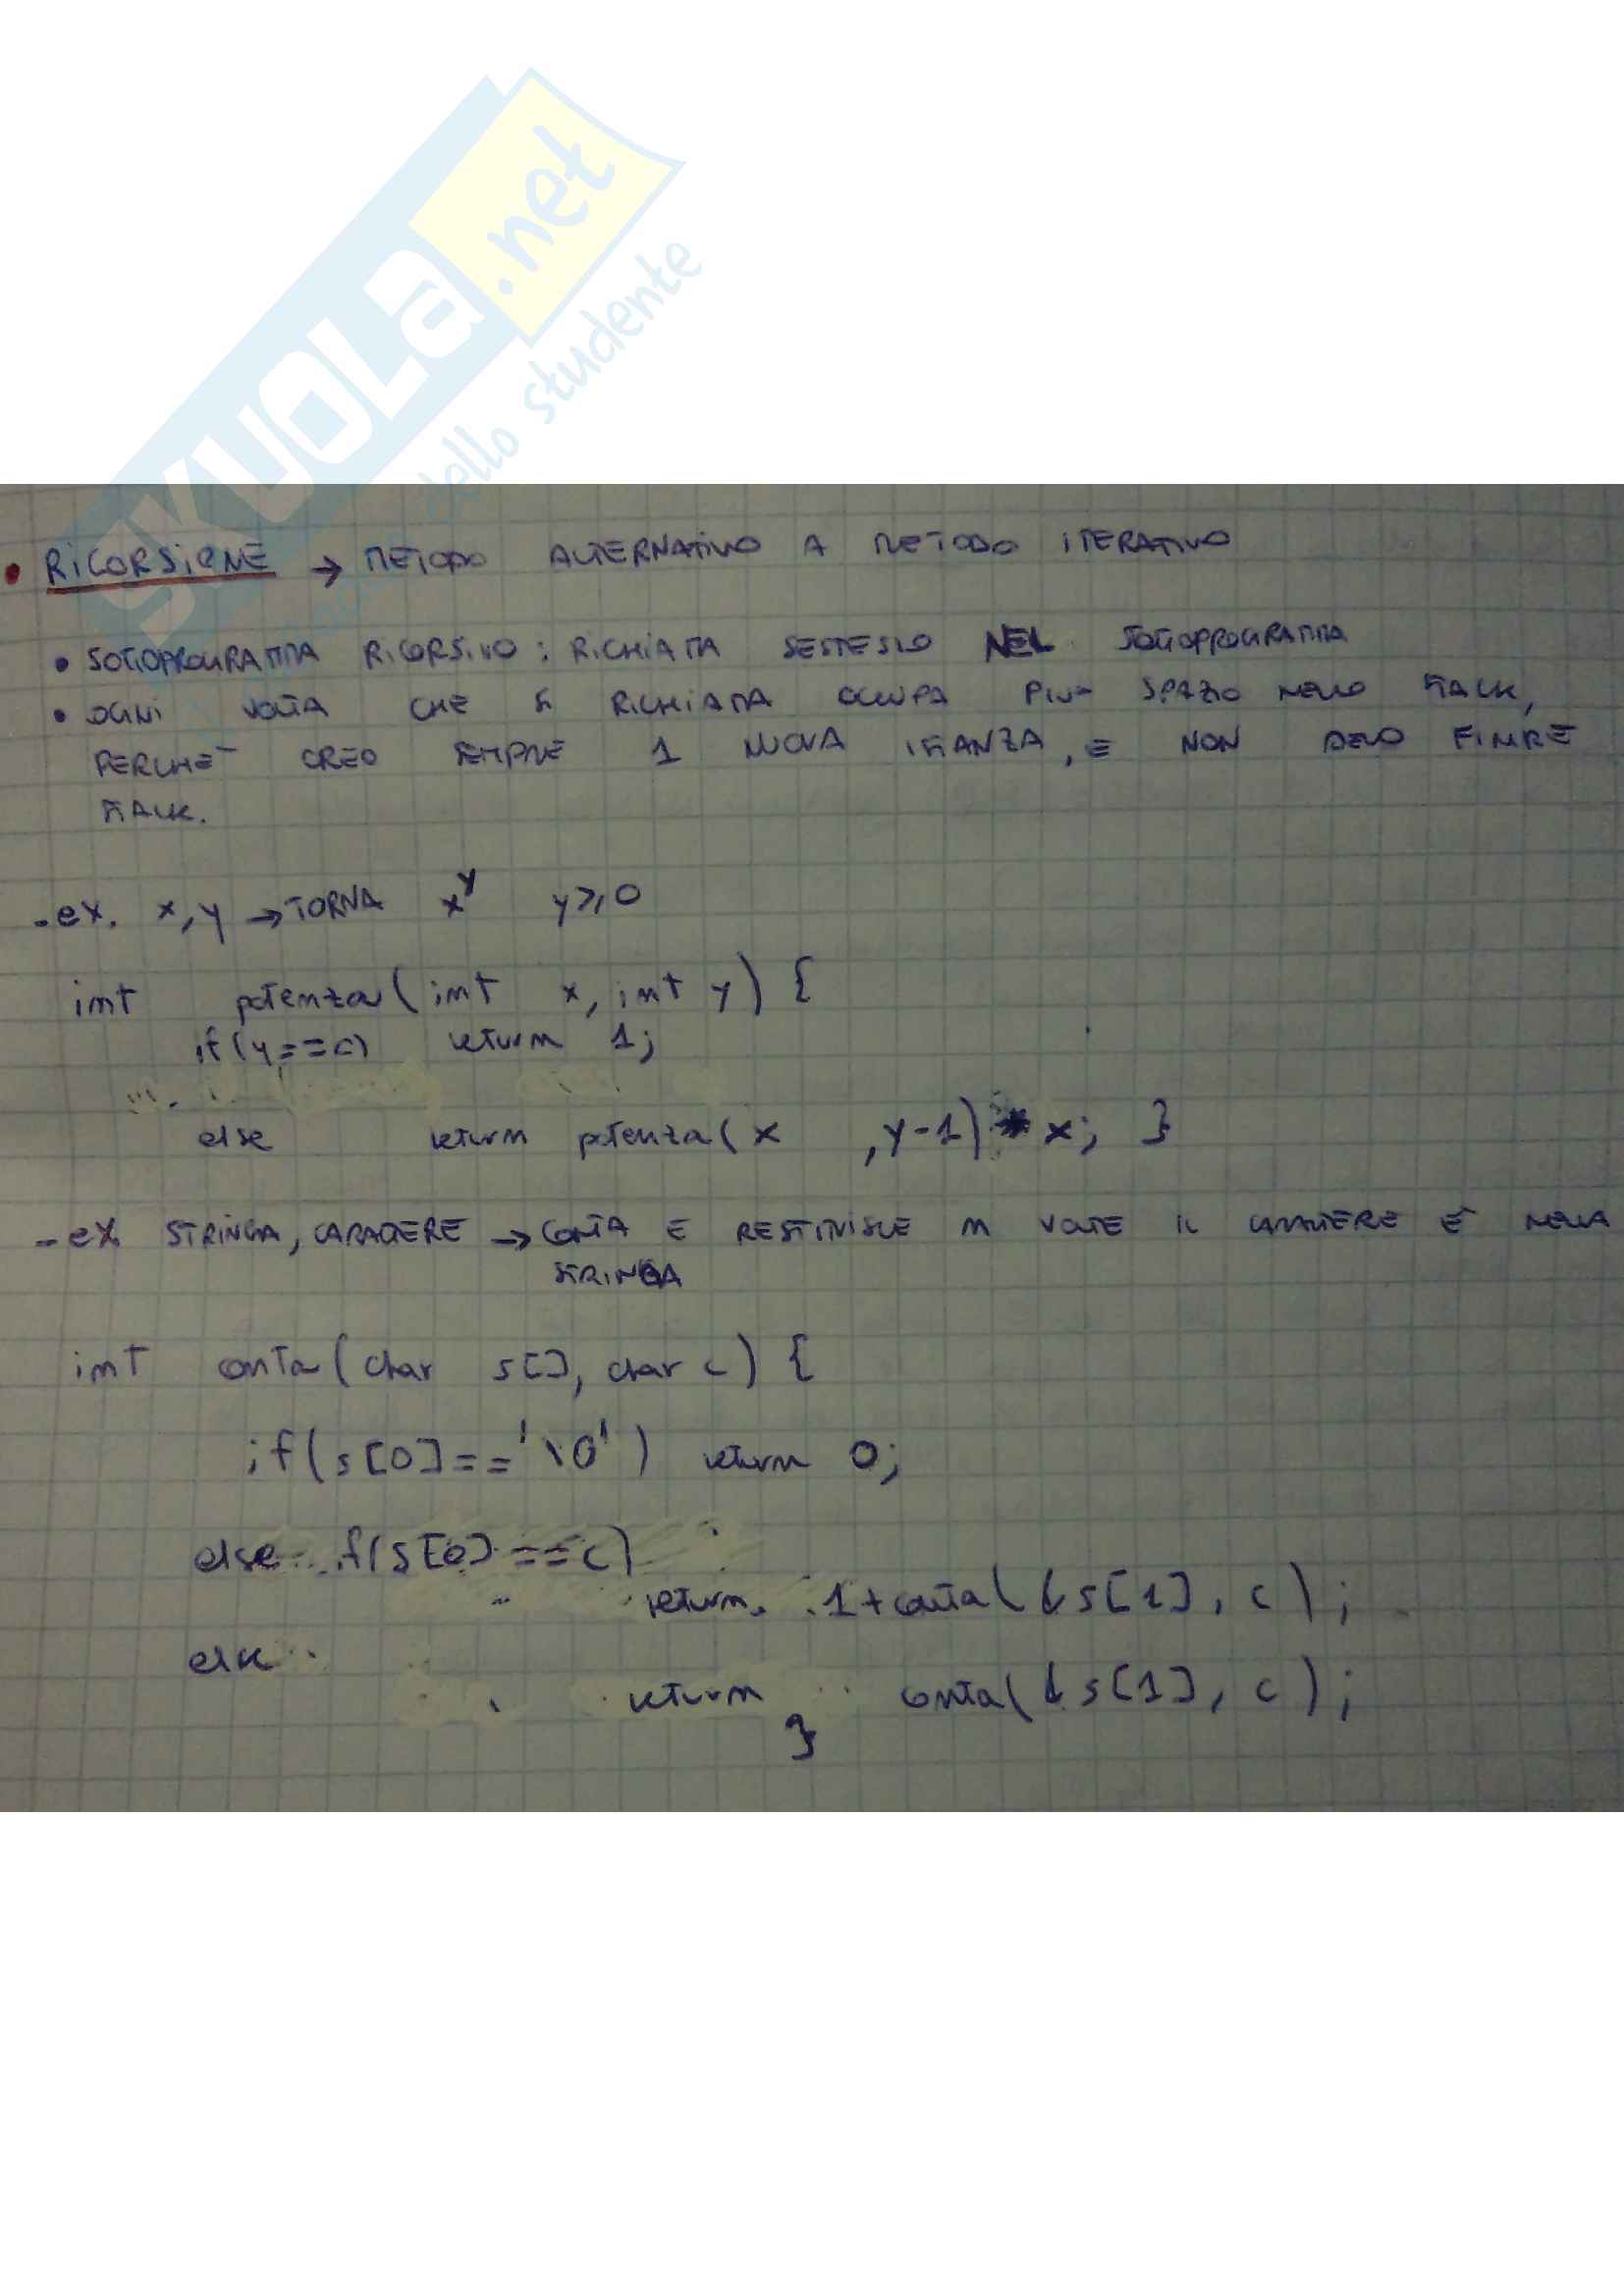 SKUOLA.net
dello studente
• RICORSIONE → METODO ALTERNATIVO A METODO ITERATIVO
• SOTTOPROGRAMMA RICORSIVO: RICHIAMA SESTESSO NEL SOTTOPROGRAMMA
• OGNI VOLTA CHE SI RICHIAMA OCCUPA PIU' SPAZIO NELLO STACK,
PERCHE' CREO SEMPRE 1 NUOVA ISTANZA, E NON DEVO FINIRE
STACK.
- ex. x, y → TORNA x^y y≥0
int potenza(int x, int y) {
if(y==0) return 1;
else return potenza(x ,y-1) * x; }
- ex STRINGA, CARATTERE → CONTA E RESTITUISCE N VOLTE IL CARATTERE E' NELLA
STRINGA
int conta(char s[], char c) {
if(s[0]=='\0') return 0;
else if(s[0]==c)
return 1+conta(&s[1], c);
else
return conta(&s[1], c);
}